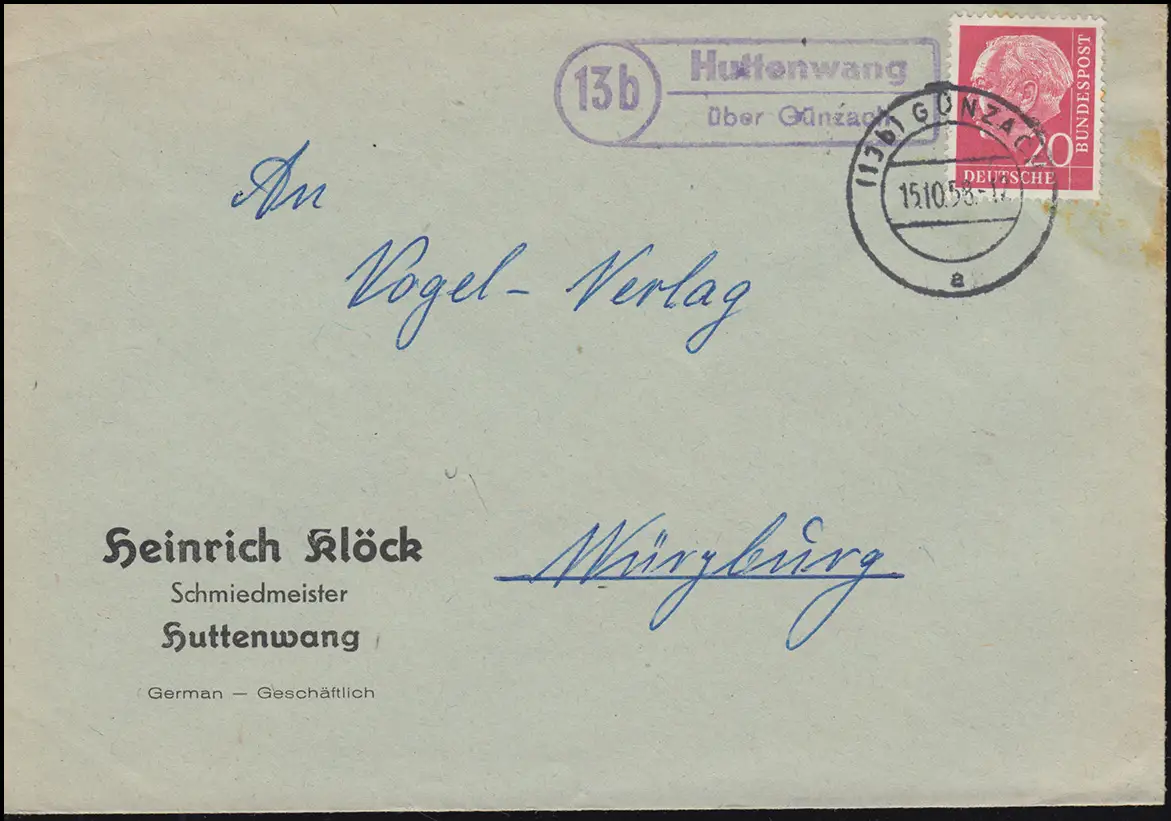 13b
Huttenwang
über Günzach
(13b) GÜNZACH
15.10.58.-17
a
20
DEUTSCHE
BUNDESPOST
An
Vogel-Verlag
Würzburg
Heinrich Klöck
Schmiedmeister
Huttenwang
German — Geschäftlich